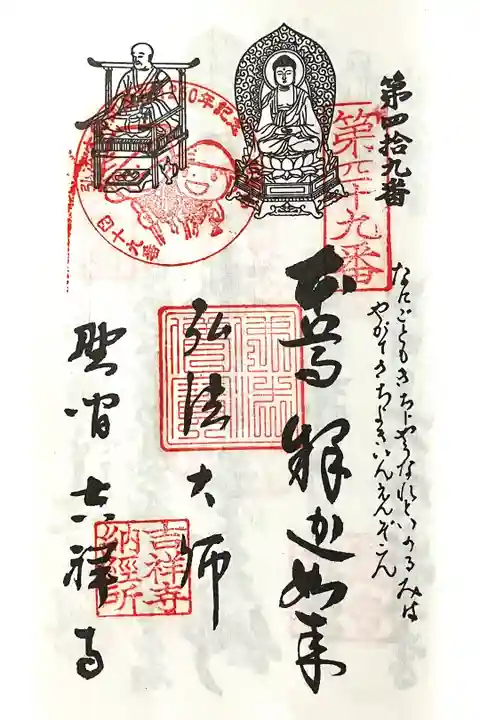 第四拾九番
第四十九番
なにごともきちじやうなれといのるみは
やがてきちよきいんえんぞこん
本尊 釋迦如来
弘法大師
野間 吉祥寺
吉祥寺
納經所
四十九番